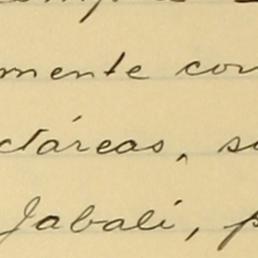 mente con
ctáreas, s
Jabali, p